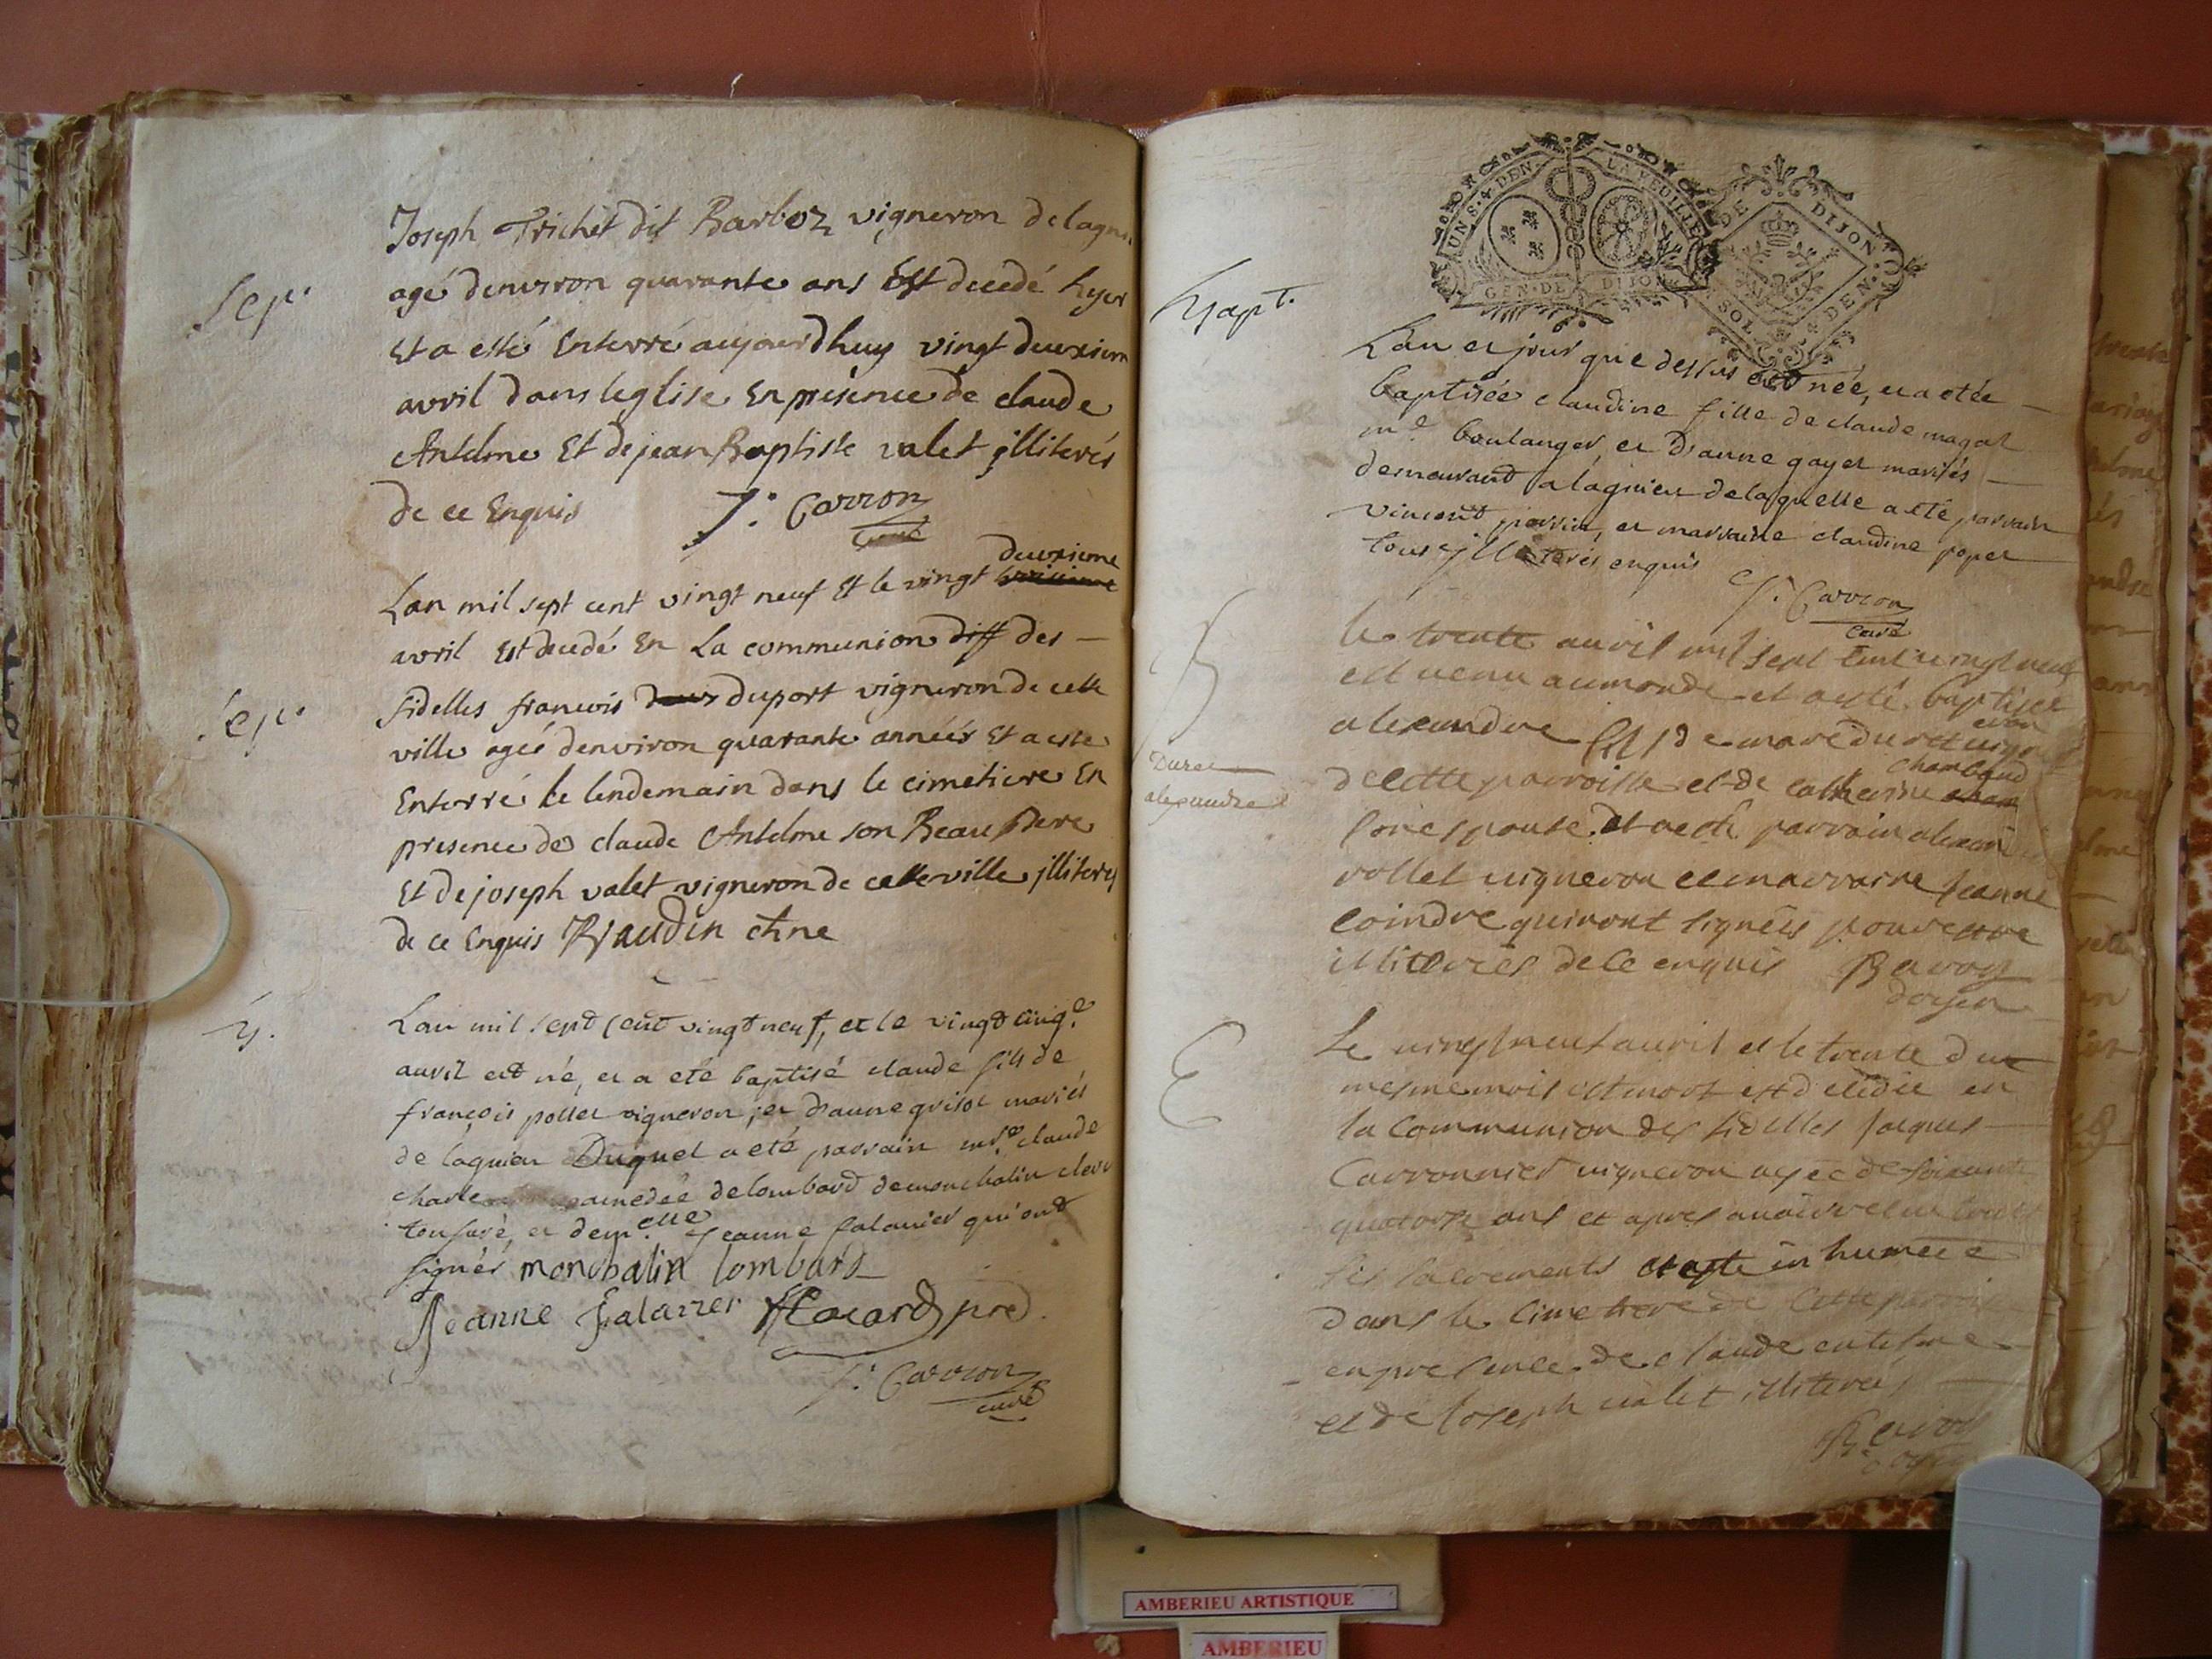 Joseph Trichet dit Barboz vigneron de lagni
Sep.
agé denviron quarante ans Est decedé hyer
Et a esté Enterré aujourdhuy vingt deuxiem
avril dans leglise En presence de claude
Antelme Et de jean Baptiste valet jlliterés
de ce Enquis J. Carron
curé
deuxieme
Lan mil sept cent vingt neuf Et le vingt
avril Est decedé En La communion diff des
Sep.
fidelles francois duport vigneron de cette
ville agé denviron quarante années Et a este
Enterré le lendemain dans le cimetiere En
presence de claude Antelme son Beau Pere
Et de joseph valet vigneron de cette ville jlliterés
de ce Enquis
Lan mil sept cent vingt neuf, et le vingt cinq.e
auril est né, et a eté baptisé claude fils de
françois pollet vigneron, et d'anne grisot mariés
de lagnieu Duquel a eté parrain mr. claude
charle amedée de lombard de monchalin clerc
tonsuré, et dem.elle jeanne falanier qui ont
signés monchalin lombard
Jeanne
J. Carron
curé
UN S. 4 DEN. LA FEUILLE
GEN. DE DIJON
DE DIJON
SOL 4 DEN.
Bapt.
Lan et jour que dessus est née, et a etée
baptisée claudine fille de claude magat
m.e boulanger, et d'anne gayet mariés
demeurant a lagnieu de laquelle a eté parrain
vincent perrin, et marraine claudine poper
tous jlliterés enquis
J. Carron
curé
le trente auril mil sept cent uingt neuf
est uenu au monde et a esté baptisee
Duret
alexandre
alexandre fils de marc duret uigne
eron
de cette parroisse et de catherine
chambaud
son espouse et a esté parrain alexand
rollet uigneron et marraine jeanne
coindre qui n'ont signées pour estre
illiterées de ce enquis Bavoz
doyen
Le uingt neuf auril et le trente du
mesme mois est mort et decedée en
la Communion des fidelles jacques
Carronnier uigneron agée de soixante
quatorze ans et apres auoir receu tous
ses sacrements et a esté inhumée
dans le cimetiere de Cette parroisse
en presence de claude antelme
et de Joseph ualet illiterés
Bavoz
doyen
AMBERIEU ARTISTIQUE
AMBERIEU